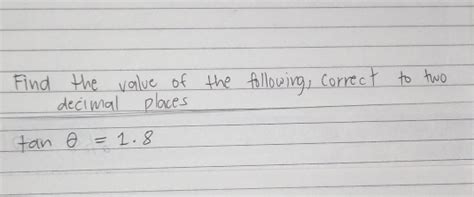 Find the value of the following, correct to two
decimal places
tan θ = 1.8